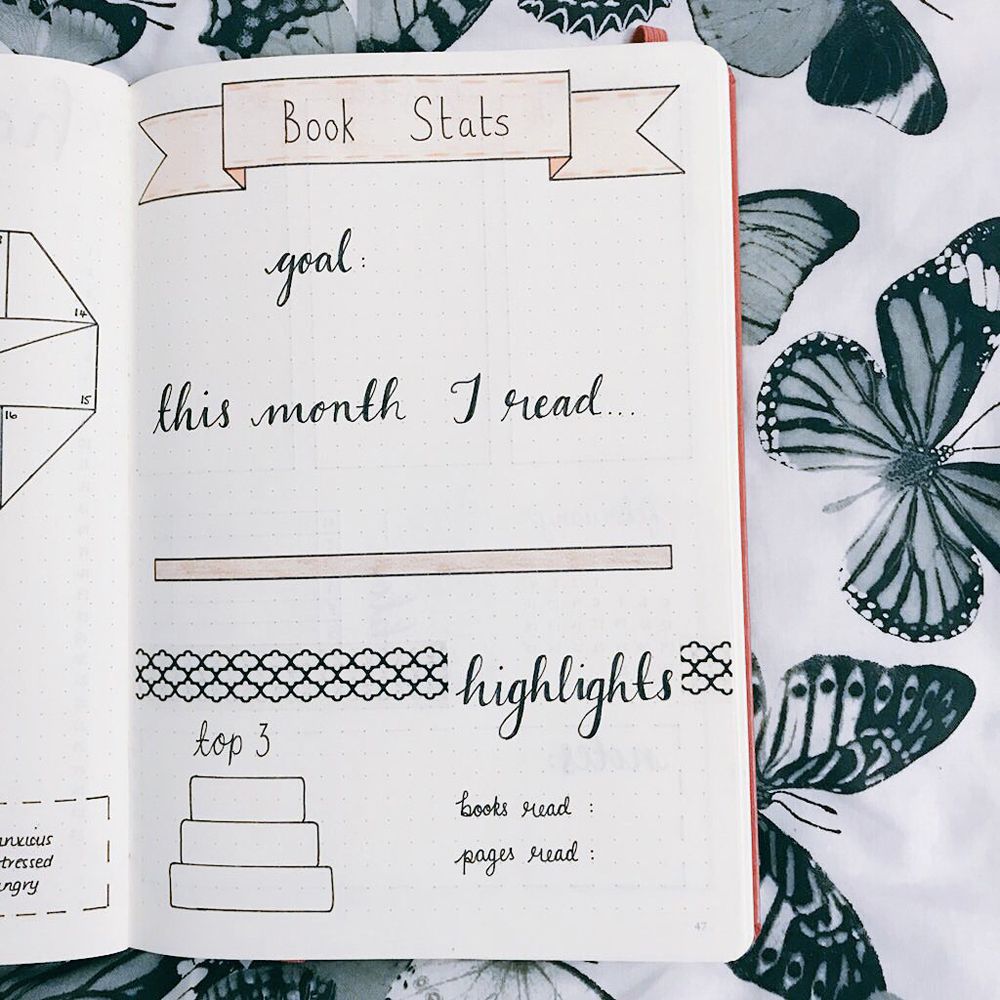 Book Stats
goal:
this month I read...
highlights
top 3
books read :
pages read :
47
14
15
16
anxious
stressed
angry